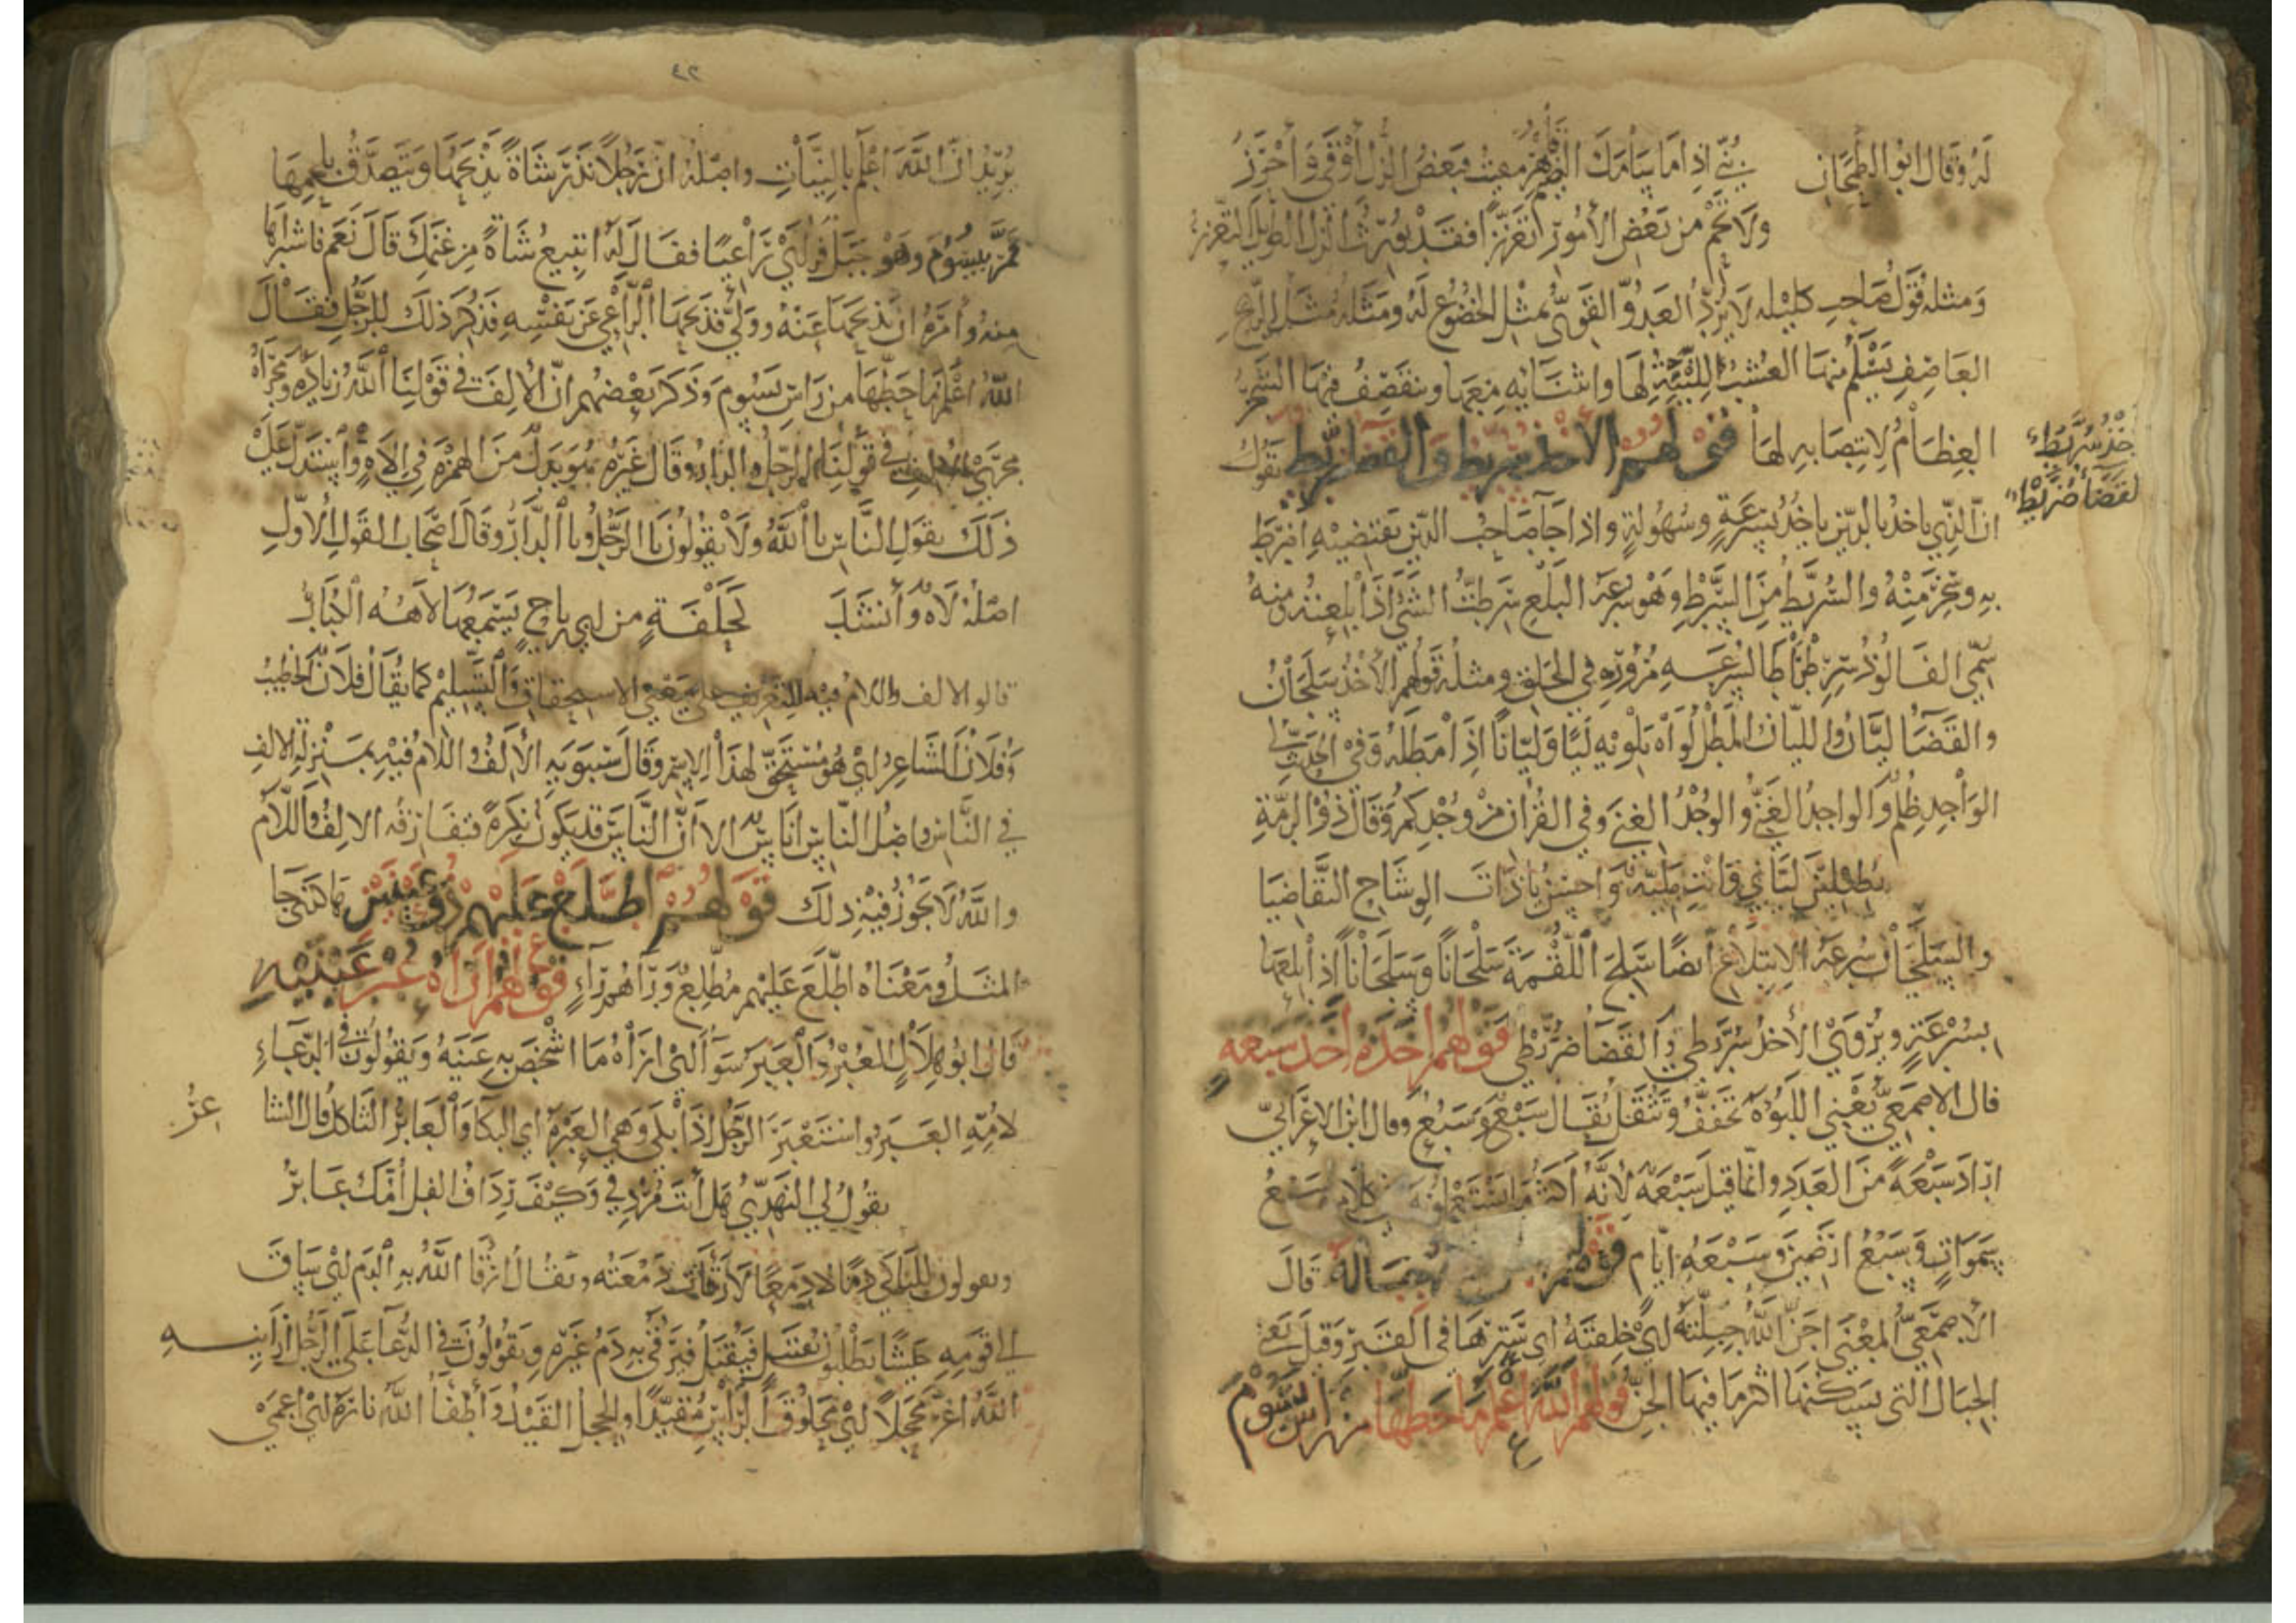 له وقال ابو الطمحان بنيّ اذا ما سامك الضيم قاهر مقيت فبعض الذل أوقى وأحرز
ولا تحم من بعض الأمور تعززا فقد يورث الذل الطويل التعزز
ومثله قول صاحب كليله لا يرد العدو القوي بمثل الخضوع له ومثله مثل الريح
العاصف يسلم منها العشب للينه لها وانثنايه معها وينقصف فيها الشجر
العظام لانتصابه لها قولهم الأخذ سريط والقضا ضريط يقول
خذ سريطاء
لقضا ضريطاء
ان الذي ياخذ بالدين ياخذ بسرعة وسهولة واذا جا صاحب الدين يقتضيه اضرط
به وسخر منه والسريط من السرط وهو سرعة البلع سرطت الشي اذا بلعته ومنه
سمي الفالوذ سرطراطا لسرعة مروره في الحلق ومثله قولهم الأخذ سلجان
والقضا ليان والليان المطل لواه يلويه ليا وليانا اذا مطله وفي الحديث لي
الواجد ظلم والواجد الغني والوجد الغنى وفي القران من وجدكم وقال ذو الرمة
تطيلين لياني وانت ملية واحسن يا ذات الوشاح التقاضيا
والسلجان سرعة الابتلاع أيضا سلج اللقمة سلجانا وسلجانا اذا بلعها
بسرعة ويروى الأخذ سريطى والقضا ضريطى قولهم اخذه اخذ سبعه
قال الاصمعي يعني اللبؤة تخفف وتثقل يقال سبع وسبع وقال ابن الاعرابي
اراد سبعة من العدد وانما قيل سبعة لأنه أكثر ما يستعلونه في كلامهم سبع
سموات وسبع ارضين وسبعة ايام قولهم جباله قال
الأصمعي المعنى اجن الله جبلته اي خلقته اي سترها في القبر وقيل يعني
الجبال التي يسكنها اكثر ما فيها الجن قولهم الله اعلم ما حطها من راس يسوم
٤٢
يريد ان الله اعلم بالنيات واصله ان رجلا نذر شاة يذبحها ويتصدق بلحمها
فمر بيسوم وهو جبل فراى راعيا فقال له اتبيع شاة من غنمك قال نعم فاشتراها
منه وأمره ان يذبحها عنه وولى فذبحها الراعي عن نفسه فذكر ذلك للرجل فقال
الله اعلم ما حطها من راس يسوم وذكر بعضهم ان الالف في قولنا الله زيادة مجراه
مجرى الالف في قولنا الرجل والدار وقال غيره هو بدل من الهمزة في الاه واستدل على
ذلك بقول الناس يا الله ولا يقولون يا الرجل ويا الدار وقال اصحاب القول الأول
اصله لاه وأنشد كحلفة من ابي رياح يسمعها لاهه الكبار
قالو الالف واللام فيه للتعريف على معنى الاستحقاق والتسليم كما يقال فلان الخطيب
وفلان الشاعر اي هو مستحق لهذا الاسم وقال سيبويه الألف واللام فيه بمنزلة الالف
في الناس واصل الناس اناس الا أن الناس قد يكون نكرة فتفارقه الالف واللام
والله لا يجوز فيه ذلك قولهم اطلع عليهم ذو عينين هاكذى جا
المثل ومعناه اطلع عليهم مطلع ورآهم رآء قولهم اراه عبر عينيه
قال ابو هلال للعبر والعبر سوا اي اراه ما اشخص به عينيه ويقولون في الدعاء
لامه العبر واستعبر الرجل اذا بكى وهي العبرة اي البكا والعابر الثاكل قال الشا
عر
يقول لي النهدي هل أنت مردفي وكيف رداف الفل أمك عابر
ويقولون للباكي دما لا دمعا لا رقات دمعته ويقال ارقا الله به الدم اي ساق
الى قومه جيشا يطلبون بقتيل فيقتل فيرقى به دم غيره ويقولون في الدعا على الرجل ارانيه
الله اغر محجلا اي محلوق الراس مقيدا والحجل القيد وأطفأ الله ناره اي اعمى